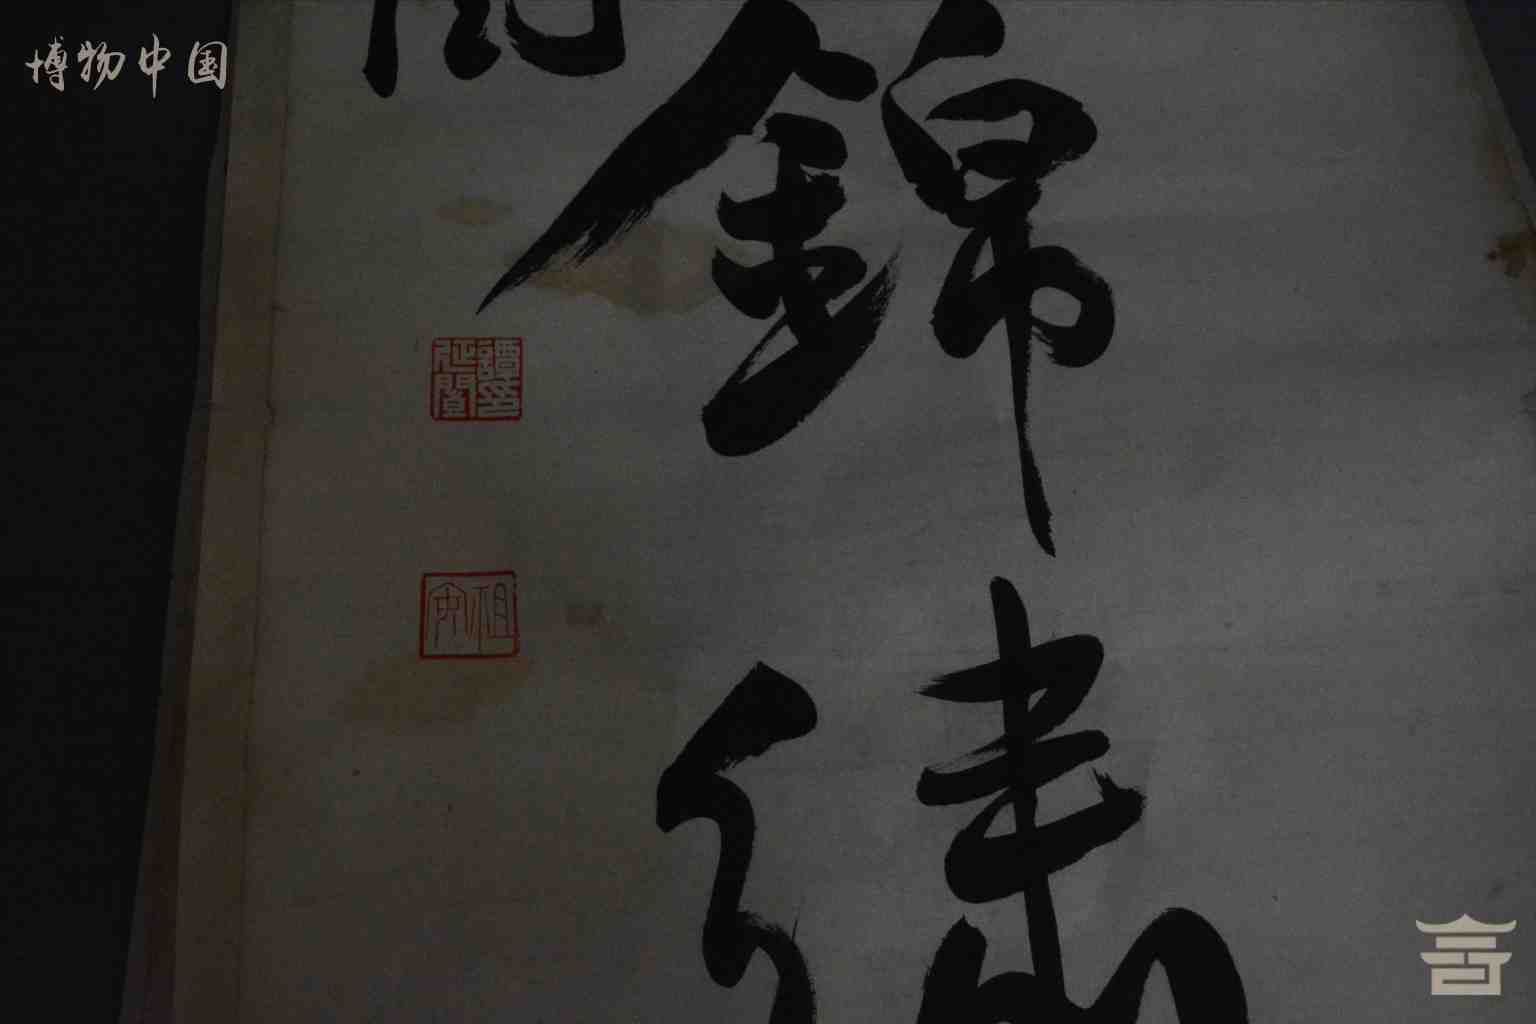 博物中国
錦繡
譚延闓印
祖安